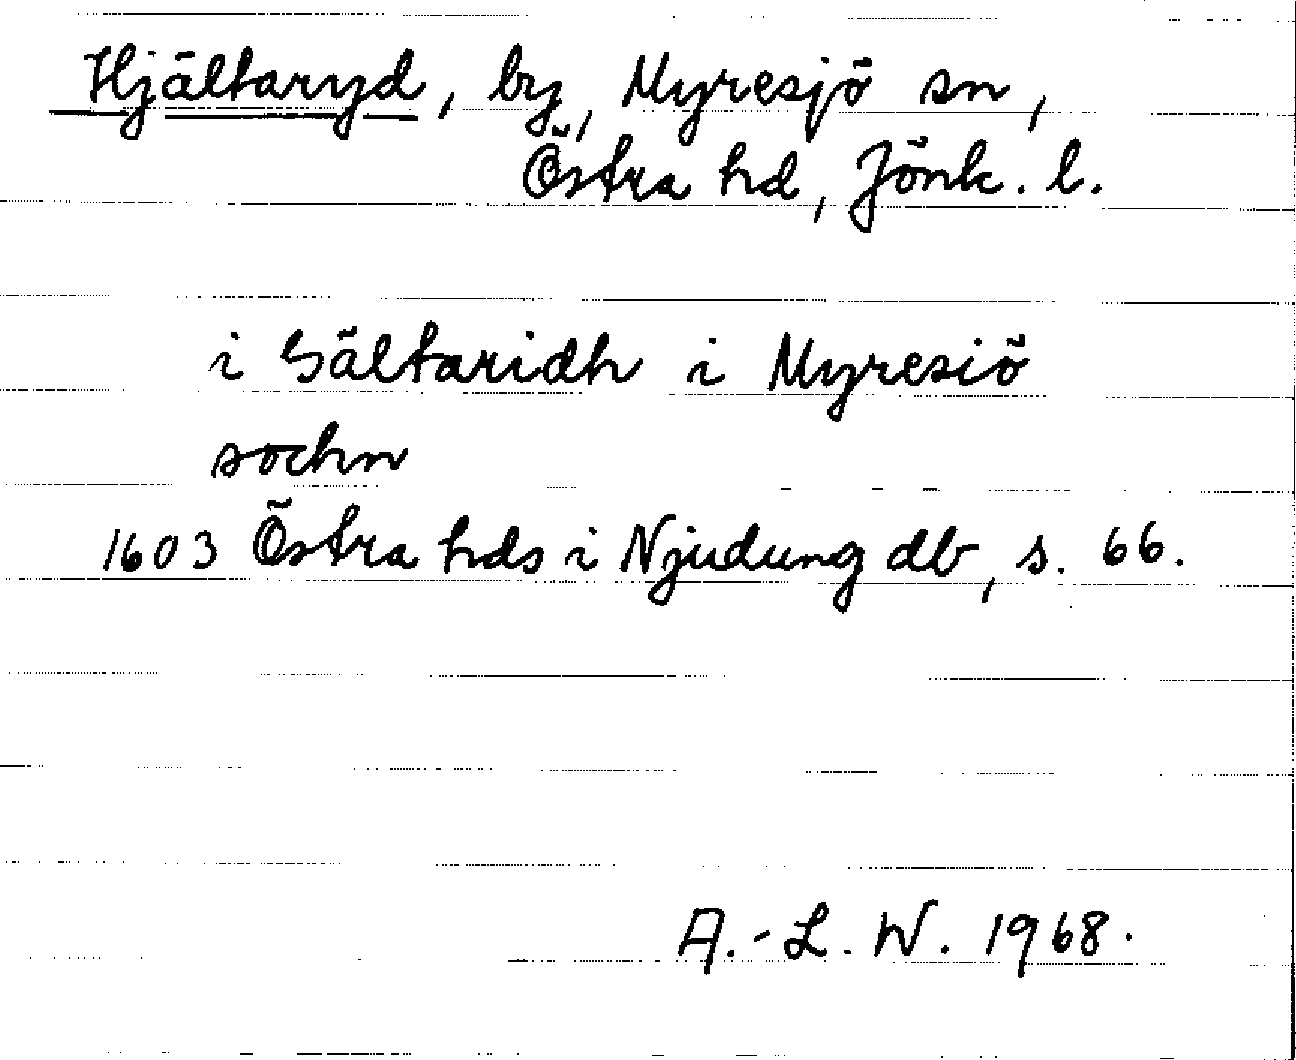 Hjältaryd, by, Myresjö sn,
Östra hd, Jönk. l.
i Sältaridh i Myresiö
sochn
1603 Östra hds i Njudung db, s. 66.
A.-L. W. 1968.